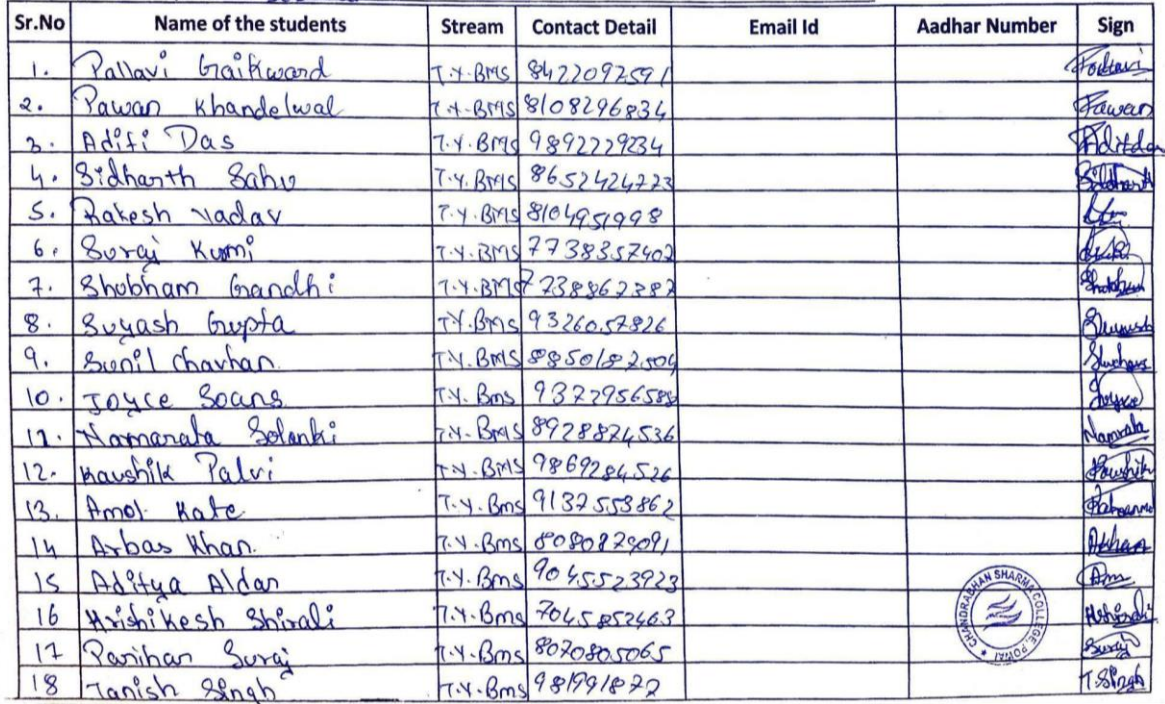 Sr.No Name of the students Stream Contact Detail Email Id Aadhar Number Sign
1. Pallavi Gaikward T.Y.BMS 8422097591
2. Pawan Khandelwal T.Y.BMS 8108296834 Pawan
3. Aditi Das T.Y.BMS 9892229234
4. Sidhanth Sahu T.Y.BMS 8652424723 Siddhanth
5. Rakesh Yadav T.Y.BMS 8104951998
6. Suraj Kurmi T.Y.BMS 7738357402
7. Shubham Gandhi T.Y.BMS 7738862382 Shubham
8. Suyash Gupta T.Y.BMS 9326057826
9. Sunil Chavhan T.Y.BMS 8850182504
10. Joyce Soans T.Y.Bms 9372956588 Joyce
11. Namarata Solanki T.Y.BMS 8928874536 Namrata
12. Kaushik Palvi T.Y.BMS 9869284526 Kaushik
13. Amol Kate T.Y.Bms 9137553862
14 Arbas Khan. T.Y.Bms 8080879091 AKhan
15 Aditya Aldar T.Y.Bms 9045523923
16 Hrishikesh Shirali T.Y.Bms 7045852463
17 Parihar Suraj T.Y.Bms 8070805065 Suraj
18 Tanish Singh T.Y.Bms 981991872 T.Singh
CHANDRABHAN SHARMA COLLEGE, POWAI